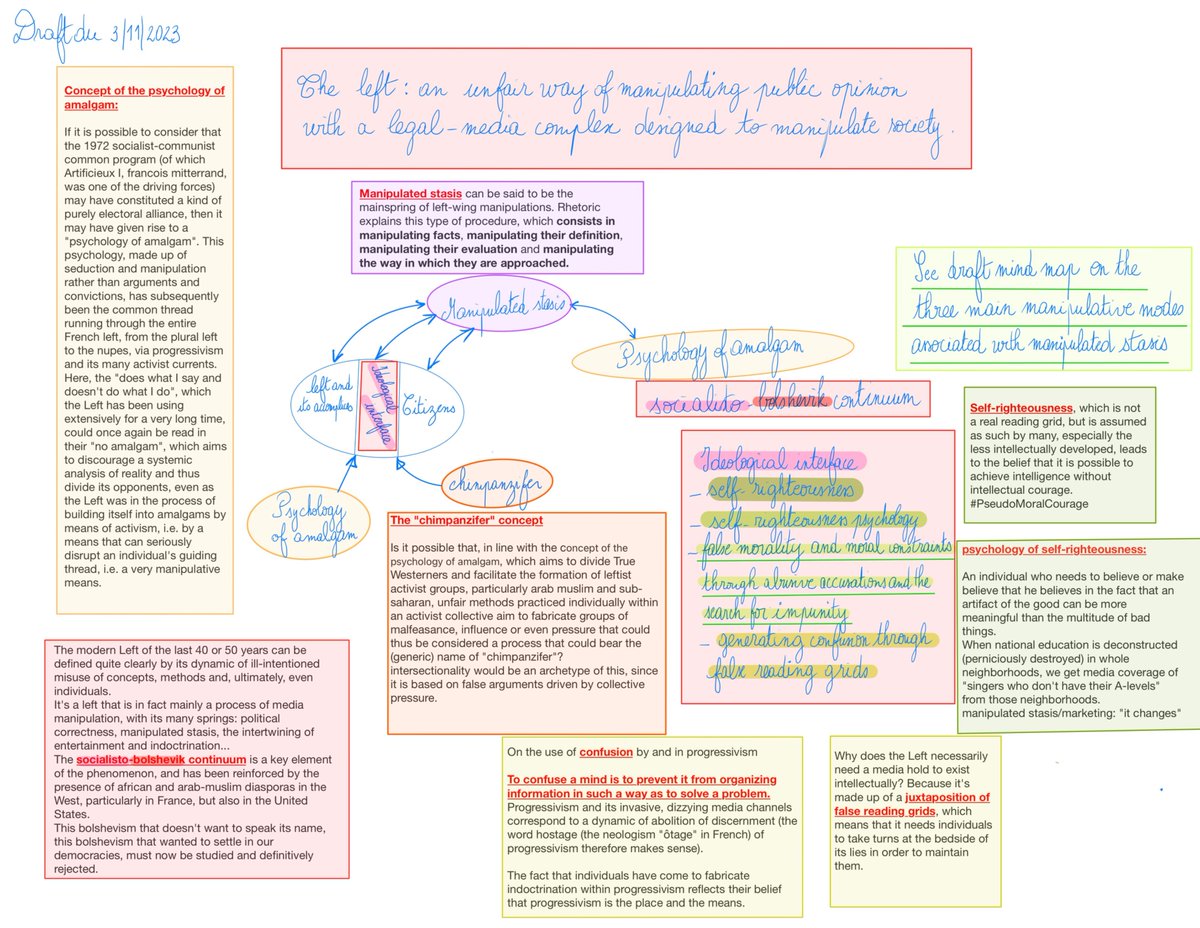 Draft du 3/11/2023
The left: an unfair way of manipulating public opinion
with a legal-media complex designed to manipulate society.
Concept of the psychology of
amalgam:
If it is possible to consider that
the 1972 socialist-communist
common program (of which
Artificieux I, francois mitterrand,
was one of the driving forces)
may have constituted a kind of
purely electoral alliance, then it
may have given rise to a
"psychology of amalgam". This
psychology, made up of
seduction and manipulation
rather than arguments and
convictions, has subsequently
been the common thread
running through the entire
French left, from the plural left
to the nupes, via progressivism
and its many activist currents.
Here, the "does what I say and
doesn't do what I do", which
the Left has been using
extensively for a very long time,
could once again be read in
their "no amalgam", which aims
to discourage a systemic
analysis of reality and thus
divide its opponents, even as
the Left was in the process of
building itself into amalgams by
means of activism, i.e. by a
means that can seriously
disrupt an individual's guiding
thread, i.e. a very manipulative
means.
Manipulated stasis can be said to be the
mainspring of left-wing manipulations. Rhetoric
explains this type of procedure, which consists in
manipulating facts, manipulating their definition,
manipulating their evaluation and manipulating
the way in which they are approached.
See draft mind map on the
three main manipulative modes
associated with manipulated stasis
Manipulated stasis
Psychology of amalgam
socialisto-bolshevik continuum
left and
its accomplices
Ideological
interface
Citizens
Psychology
of amalgam
chimpanzifer
Ideological interface
- self-righteousness
- self-righteousness psychology
- false morality and moral constraints
through abusive accusations and the
search for impunity
- generating confusion through
false reading grids
Self-righteousness, which is not
a real reading grid, but is assumed
as such by many, especially the
less intellectually developed, leads
to the belief that it is possible to
achieve intelligence without
intellectual courage.
#PseudoMoralCourage
The "chimpanzifer" concept
Is it possible that, in line with the concept of the
psychology of amalgam, which aims to divide True
Westerners and facilitate the formation of leftist
activist groups, particularly arab muslim and sub-
saharan, unfair methods practiced individually within
an activist collective aim to fabricate groups of
malfeasance, influence or even pressure that could
thus be considered a process that could bear the
(generic) name of "chimpanzifer"?
intersectionality would be an archetype of this, since
it is based on false arguments driven by collective
pressure.
psychology of self-righteousness:
An individual who needs to believe or make
believe that he believes in the fact that an
artifact of the good can be more
meaningful than the multitude of bad
things.
When national education is deconstructed
(perniciously destroyed) in whole
neighborhoods, we get media coverage of
"singers who don't have their A-levels"
from those neighborhoods.
manipulated stasis/marketing: "it changes"
The modern Left of the last 40 or 50 years can be
defined quite clearly by its dynamic of ill-intentioned
misuse of concepts, methods and, ultimately, even
individuals.
It's a left that is in fact mainly a process of media
manipulation, with its many springs: political
correctness, manipulated stasis, the intertwining of
entertainment and indoctrination...
The socialisto-bolshevik continuum is a key
element of the phenomenon, and has been reinforced by the
presence of african and arab-muslim diasporas in the
West, particularly in France, but also in the United
States.
This bolshevism that doesn't want to speak its name,
this bolshevism that wanted to settle in our
democracies, must now be studied and definitively
rejected.
On the use of confusion by and in progressivism
To confuse a mind is to prevent it from organizing
information in such a way as to solve a problem.
Progressivism and its invasive, dizzying media channels
correspond to a dynamic of abolition of discernment (the
word hostage (the neologism "ôtage" in French) of
progressivism therefore makes sense).
The fact that individuals have come to fabricate
indoctrination within progressivism reflects their belief
that progressivism is the place and the means.
Why does the Left necessarily
need a media hold to exist
intellectually? Because it's
made up of a juxtaposition of
false reading grids, which
means that it needs individuals
to take turns at the bedside of
its lies in order to maintain
them.